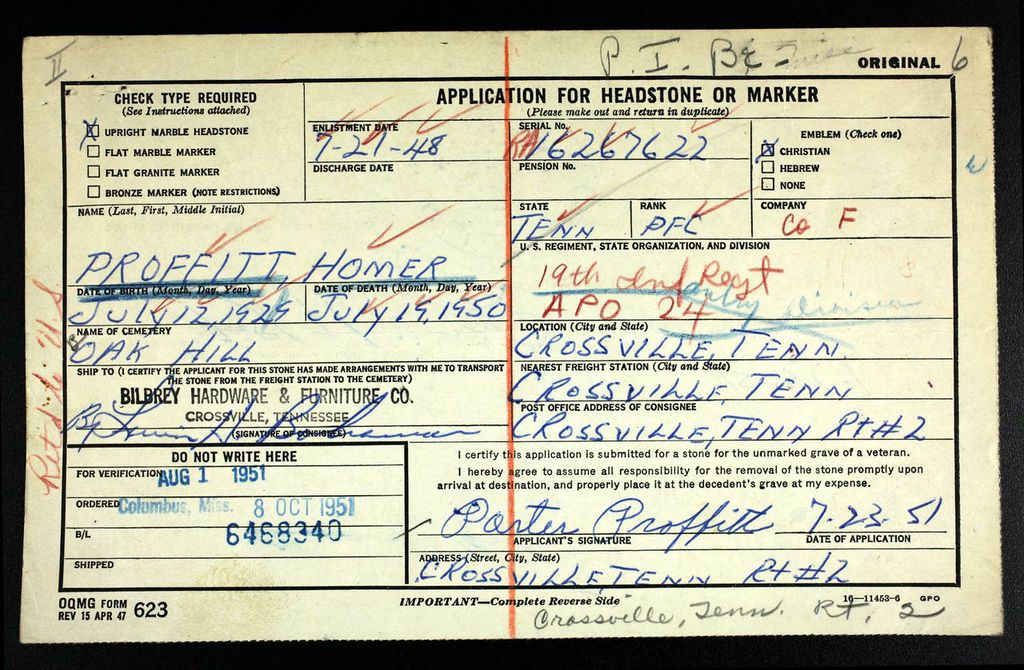 II
P. I. Br
ORIGINAL 6
CHECK TYPE REQUIRED
(See Instructions attached)
X UPRIGHT MARBLE HEADSTONE
FLAT MARBLE MARKER
FLAT GRANITE MARKER
BRONZE MARKER (NOTE RESTRICTIONS)
APPLICATION FOR HEADSTONE OR MARKER
(Please make out and return in duplicate)
ENLISTMENT DATE
7-21-48
DISCHARGE DATE
SERIAL No.
RA 16267622
PENSION No.
EMBLEM (Check one)
X CHRISTIAN
HEBREW
NONE
NAME (Last, First, Middle Initial)
PROFFITT, HOMER
STATE
TENN
RANK
PFC
COMPANY
Co F
U. S. REGIMENT, STATE ORGANIZATION, AND DIVISION
19th Inf Regt
APO 24 Division
DATE OF BIRTH (Month, Day, Year)
July 12, 1929
DATE OF DEATH (Month, Day, Year)
July 19, 1950
NAME OF CEMETERY
OAK HILL
LOCATION (City and State)
CROSSVILLE, TENN.
SHIP TO (I CERTIFY THE APPLICANT FOR THIS STONE HAS MADE ARRANGEMENTS WITH ME TO TRANSPORT
THE STONE FROM THE FREIGHT STATION TO THE CEMETERY)
BILBREY HARDWARE & FURNITURE CO.
CROSSVILLE, TENNESSEE
By
(SIGNATURE OF CONSIGNEE)
NEAREST FREIGHT STATION (City and State)
CROSSVILLE, TENN
POST OFFICE ADDRESS OF CONSIGNEE
CROSSVILLE, TENN Rt#2
DO NOT WRITE HERE
FOR VERIFICATION AUG 1 1951
ORDERED Columbus, Miss. 8 OCT 1951
B/L 6468340
SHIPPED
I certify this application is submitted for a stone for the unmarked grave of a veteran.
I hereby agree to assume all responsibility for the removal of the stone promptly upon
arrival at destination, and properly place it at the decedent's grave at my expense.
Porter Proffitt 7-23-51
APPLICANT'S SIGNATURE DATE OF APPLICATION
ADDRESS (Street, City, State)
CROSSVILLE TENN Rt#2
OQMG FORM
REV 15 APR 47 623
IMPORTANT—Complete Reverse Side
16—11453-6 GPO
Crossville, Tenn. Rt. 2
Retd to U S